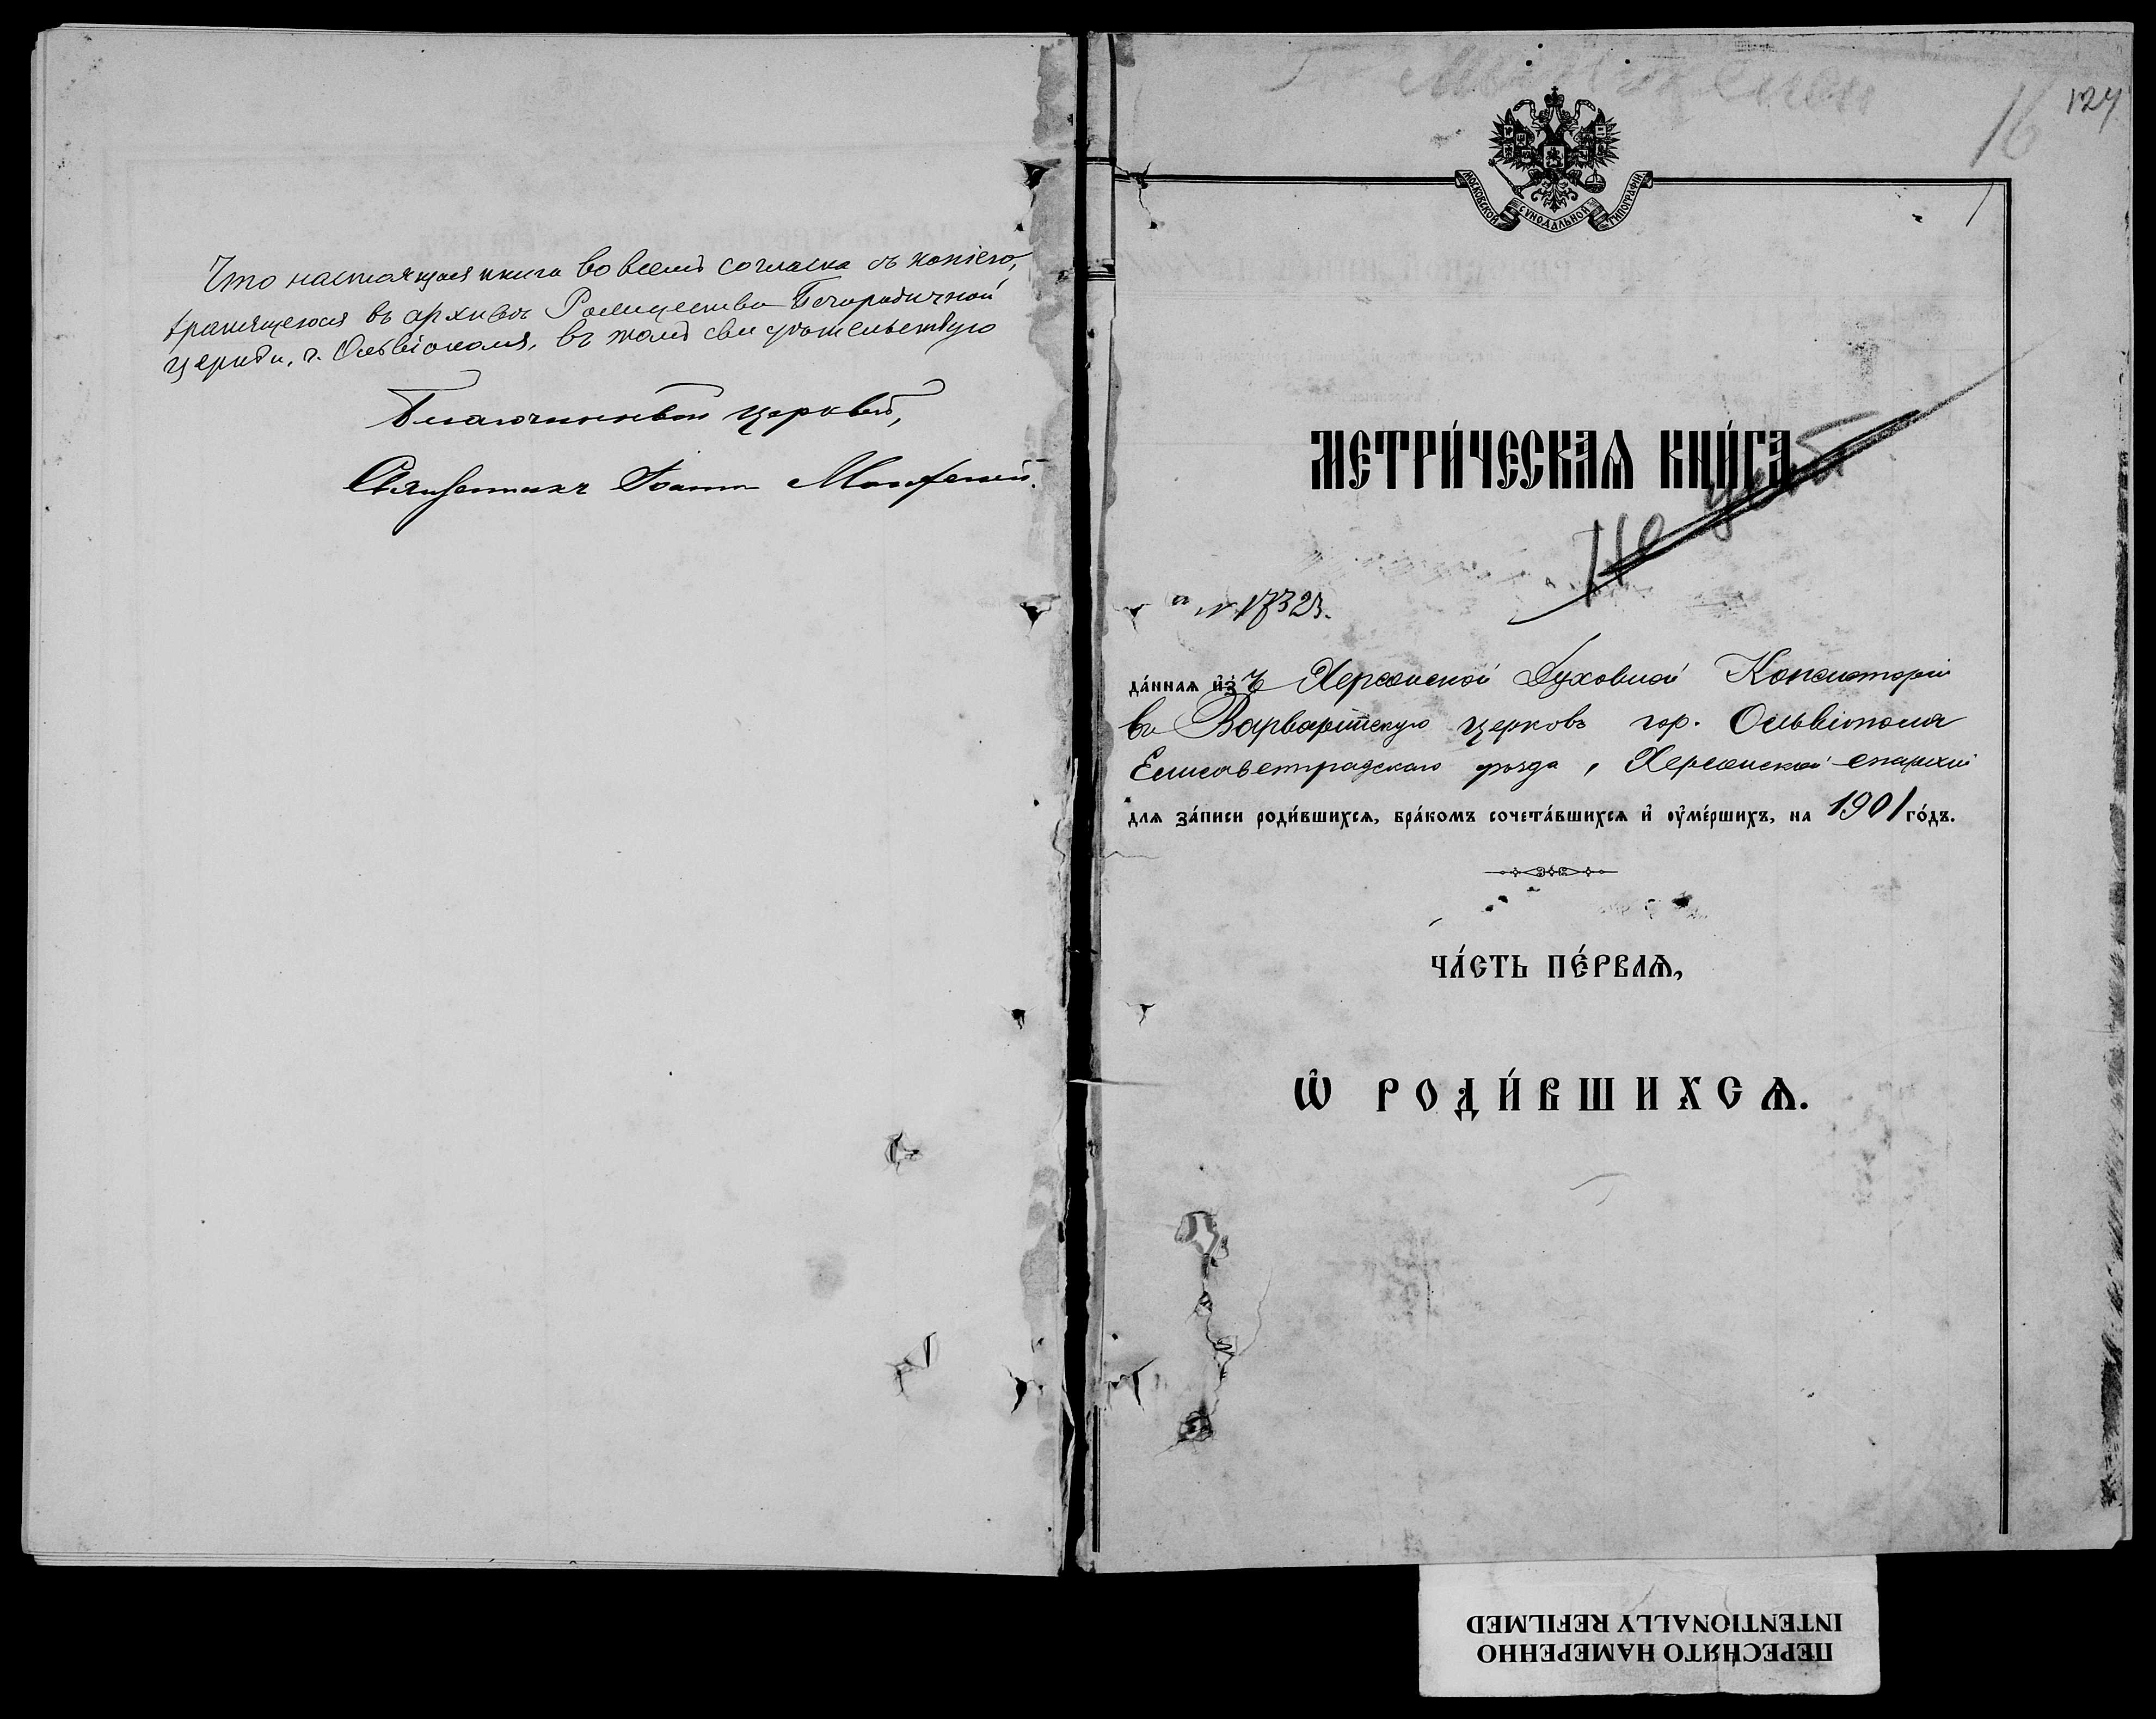 Что настоящая книга во всемъ согласна съ копіею,
хранящеюся въ архивѣ Рождество Богородичной
церкви, г. Ольвіополя, въ томъ свидѣтельствую
Благочинный церквей,
Священникъ Іоаннъ
16
124
МОСКОВСКОЙ СѴНОДАЛЬНОЙ ТИПОГРАФІИ
МЕТРИ́ЧЕСКАѦ КНИ́ГА
Не
№ 17323.
да́ннаѧ и҆зъ Херсонской Духовной Консисторіи
въ Варваринскую церковь гор. Ольвіополя
Елисаветградскаго уѣзда, Херсонской епархіи
длѧ за́писи роди́вшихсѧ, бра́комъ сочета́вшихсѧ и҆ ᲂу҆ме́ршихъ, на 1901 го́дъ.
ЧА́СТЬ ПЕ́РВАѦ,
Ѡ҆ РОДИ́ВШИХСѦ.
ПЕРЕСНЯТО НАМЕРЕННО
INTENTIONALLY REFILMED